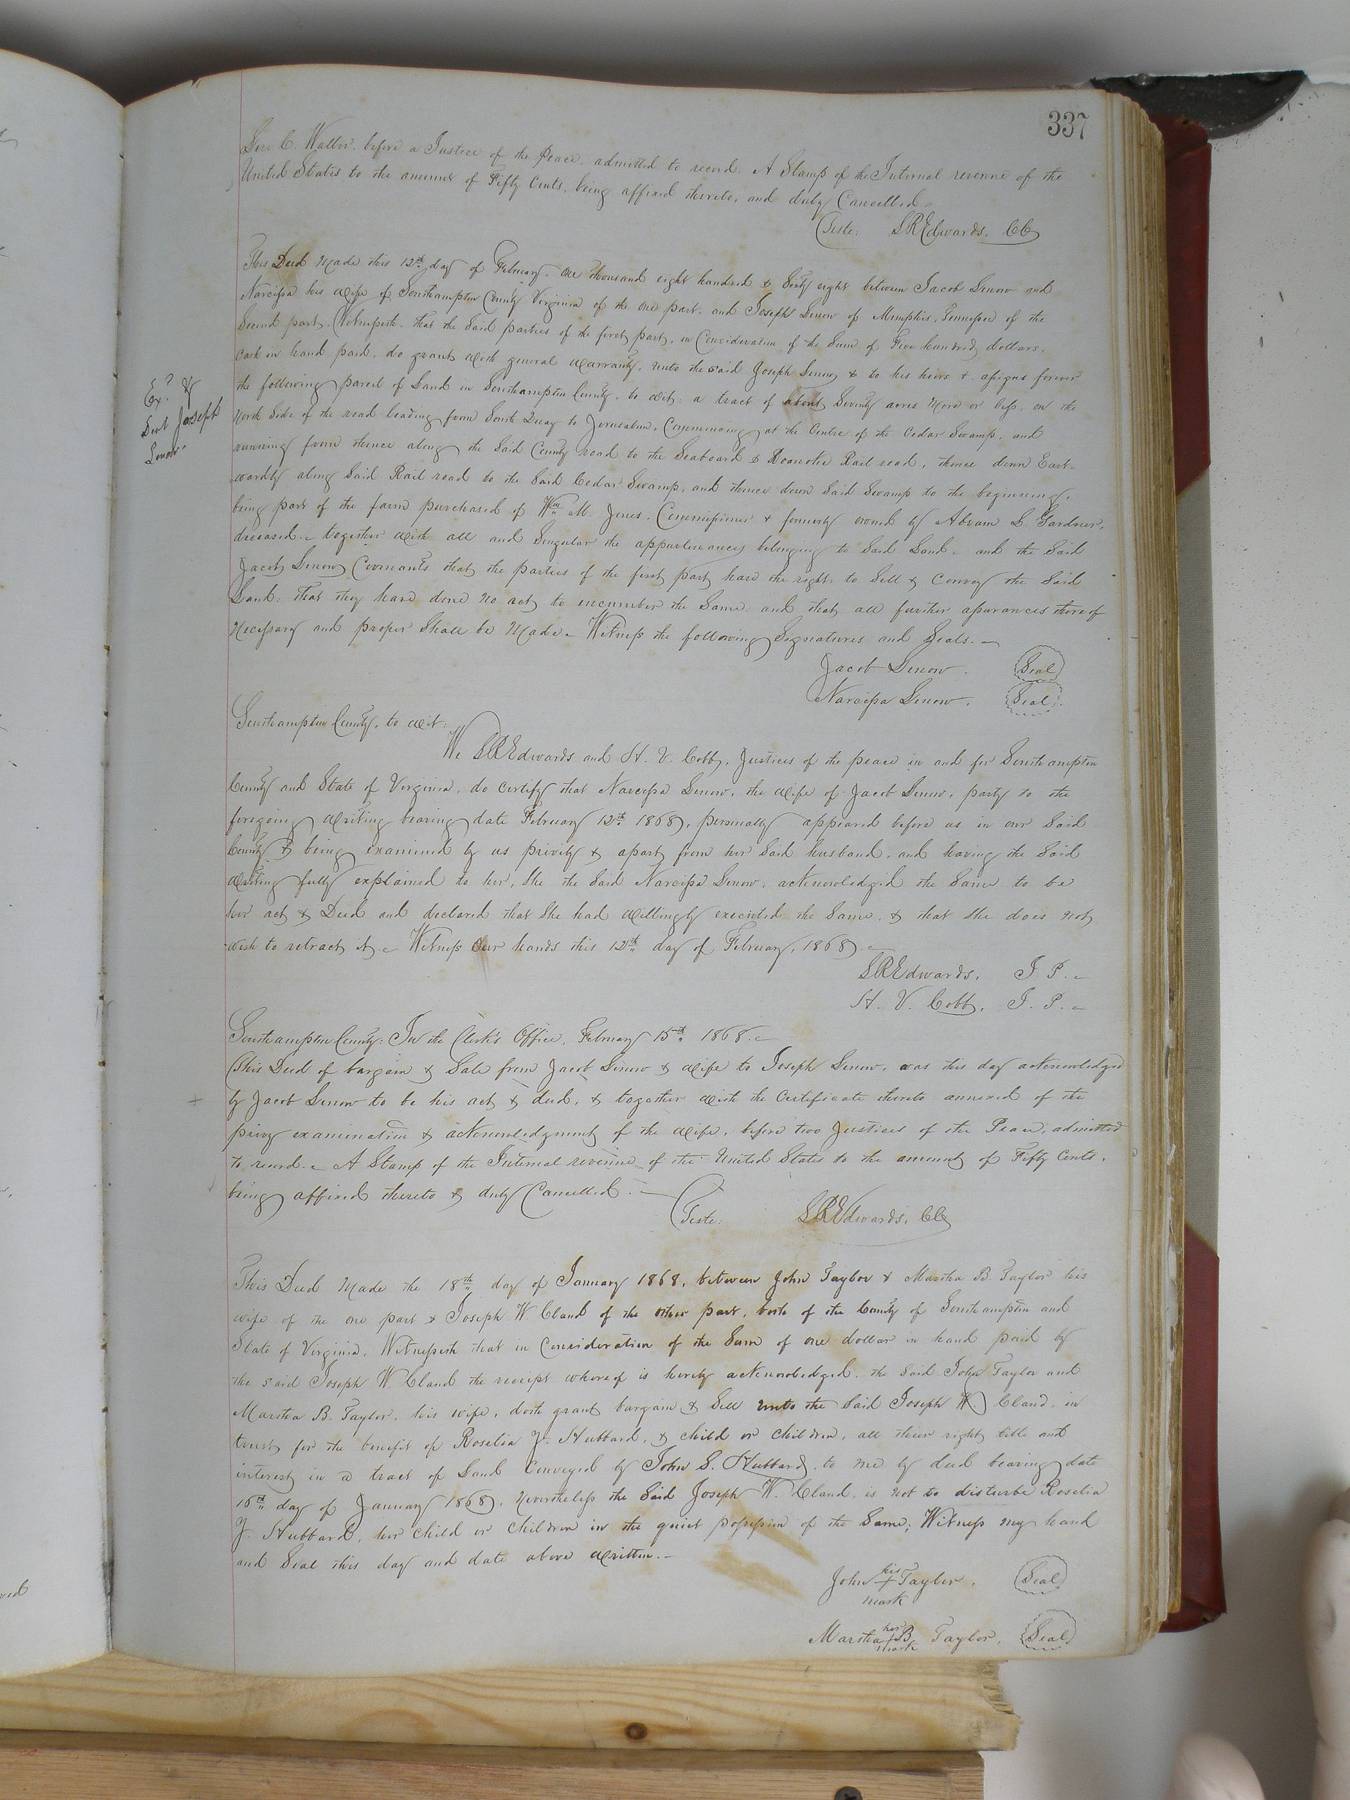 337
Geo C. Waller. before a Justice of the Peace. admitted to record. A Stamp of the Internal revenue of the
United States to the amount of Fifty Cents. being affixed thereto, and duly Cancelled.
Teste: SREdwards, CC
This Deed Made this 12th day of February. One thousand eight hundred & Sixty eight between Jacob Lenow and
Narcissa his Wife of Southampton County Virginia of the one part. and Joseph Lenow of Memphis, Tennessee of the
Second part. Witnesseth. that the Said parties of the first part, in Consideration of the Sum of Five hundred dollars.
Cash in hand paid. do grant with general Warranty, unto the said Joseph Lenow & to his heirs & assigns forever
the following parcel of Land in Southampton County. to wit: a tract of about Seventy acres More or less, on the
North Side of the road leading from South Quay to Jerusalem, Commencing at the Centre of the Cedar Swamp. and
running from thence along the Said County road to the Seaboard & Roanoke Rail road, thence down East-
wardly along Said Rail road to the Said Cedar Swamp, and thence down Said Swamp to the beginning,
being part of the farm purchased of Wm M. Jones. Commissioner & formerly owned by Abram L. Gardner,
deceased. together with all and Singular the appurtenances belonging to Said Land. and the Said
Jacob Lenow Covenants that the parties of the first part, have the right to Sell & Convey the Said
Land. That they have done no act, to encumber the Same. and that, all further assurances thereof
Necessary and proper Shall be Made. Witness the following Signatures and Seals.
Ex.d &
Sent Joseph
Lenow.
Jacob Lenow. Seal
Narcissa Lenow. Seal
Southampton County, to wit:
We SREdwards and H. V. Cobb, Justices of the peace in and for Southampton
County and State of Virginia. do Certify that Narcissa Lenow, the Wife of Jacob Lenow, party to the
foregoing Writing bearing date February 12th 1868, personally appeared before us in our Said
County & being examined by us privily & apart from her Said husband. and having the Said
Writing fully explained to her, She the Said Narcissa Lenow, acknowledged the Same to be
her act & Deed and declared that She had Willingly executed the Same. & that She does not
wish to retract it. Witness Our hands this 12th day of February, 1868.
SREdwards, J. P.
H. V. Cobb, J. P.
Southampton County: In the Clerk's Office, February 15th 1868.
This Deed of bargain & Sale from Jacob Lenow & Wife to Joseph Lenow, was this day acknowledged
by Jacob Lenow to be his act & deed, & together with the Certificate thereto annexed of the
privy examination & acknowledgment of the Wife, before two Justices of the Peace. admitted
to record. A Stamp of the Internal revenue of the United States to the amount of Fifty Cents,
being affixed thereto & duly Cancelled.
Teste: SREdwards, CC
This Deed Made the 18th day of January 1868, between John Taylor & Martha B. Taylor his
wife of the one part & Joseph W Claud of the other part, both of the County of Southampton and
State of Virginia. Witnesseth that in Consideration of the Sum of one dollar in hand paid by
the said Joseph W. Claud the receipt whereof is hereby acknowledged. the Said John Taylor and
Martha B. Taylor, his wife, doth grant bargain & Sell unto the Said Joseph W. Claud. in
trust for the benefit of Roselia J. Hubbard, & child or children, all their right title and
interest in a tract of Land Conveyed by John S. Hubbard, to me by deed bearing date
16th day of January 1868. Nevertheless the Said Joseph W. Claud. is not to disturbe Roselia
J. Hubbard, her Child or Children in the quiet possession of the Same; Witness my hand
and Seal this day and date above Written.
John his + mark Taylor. Seal
Martha her + mark B. Taylor. Seal